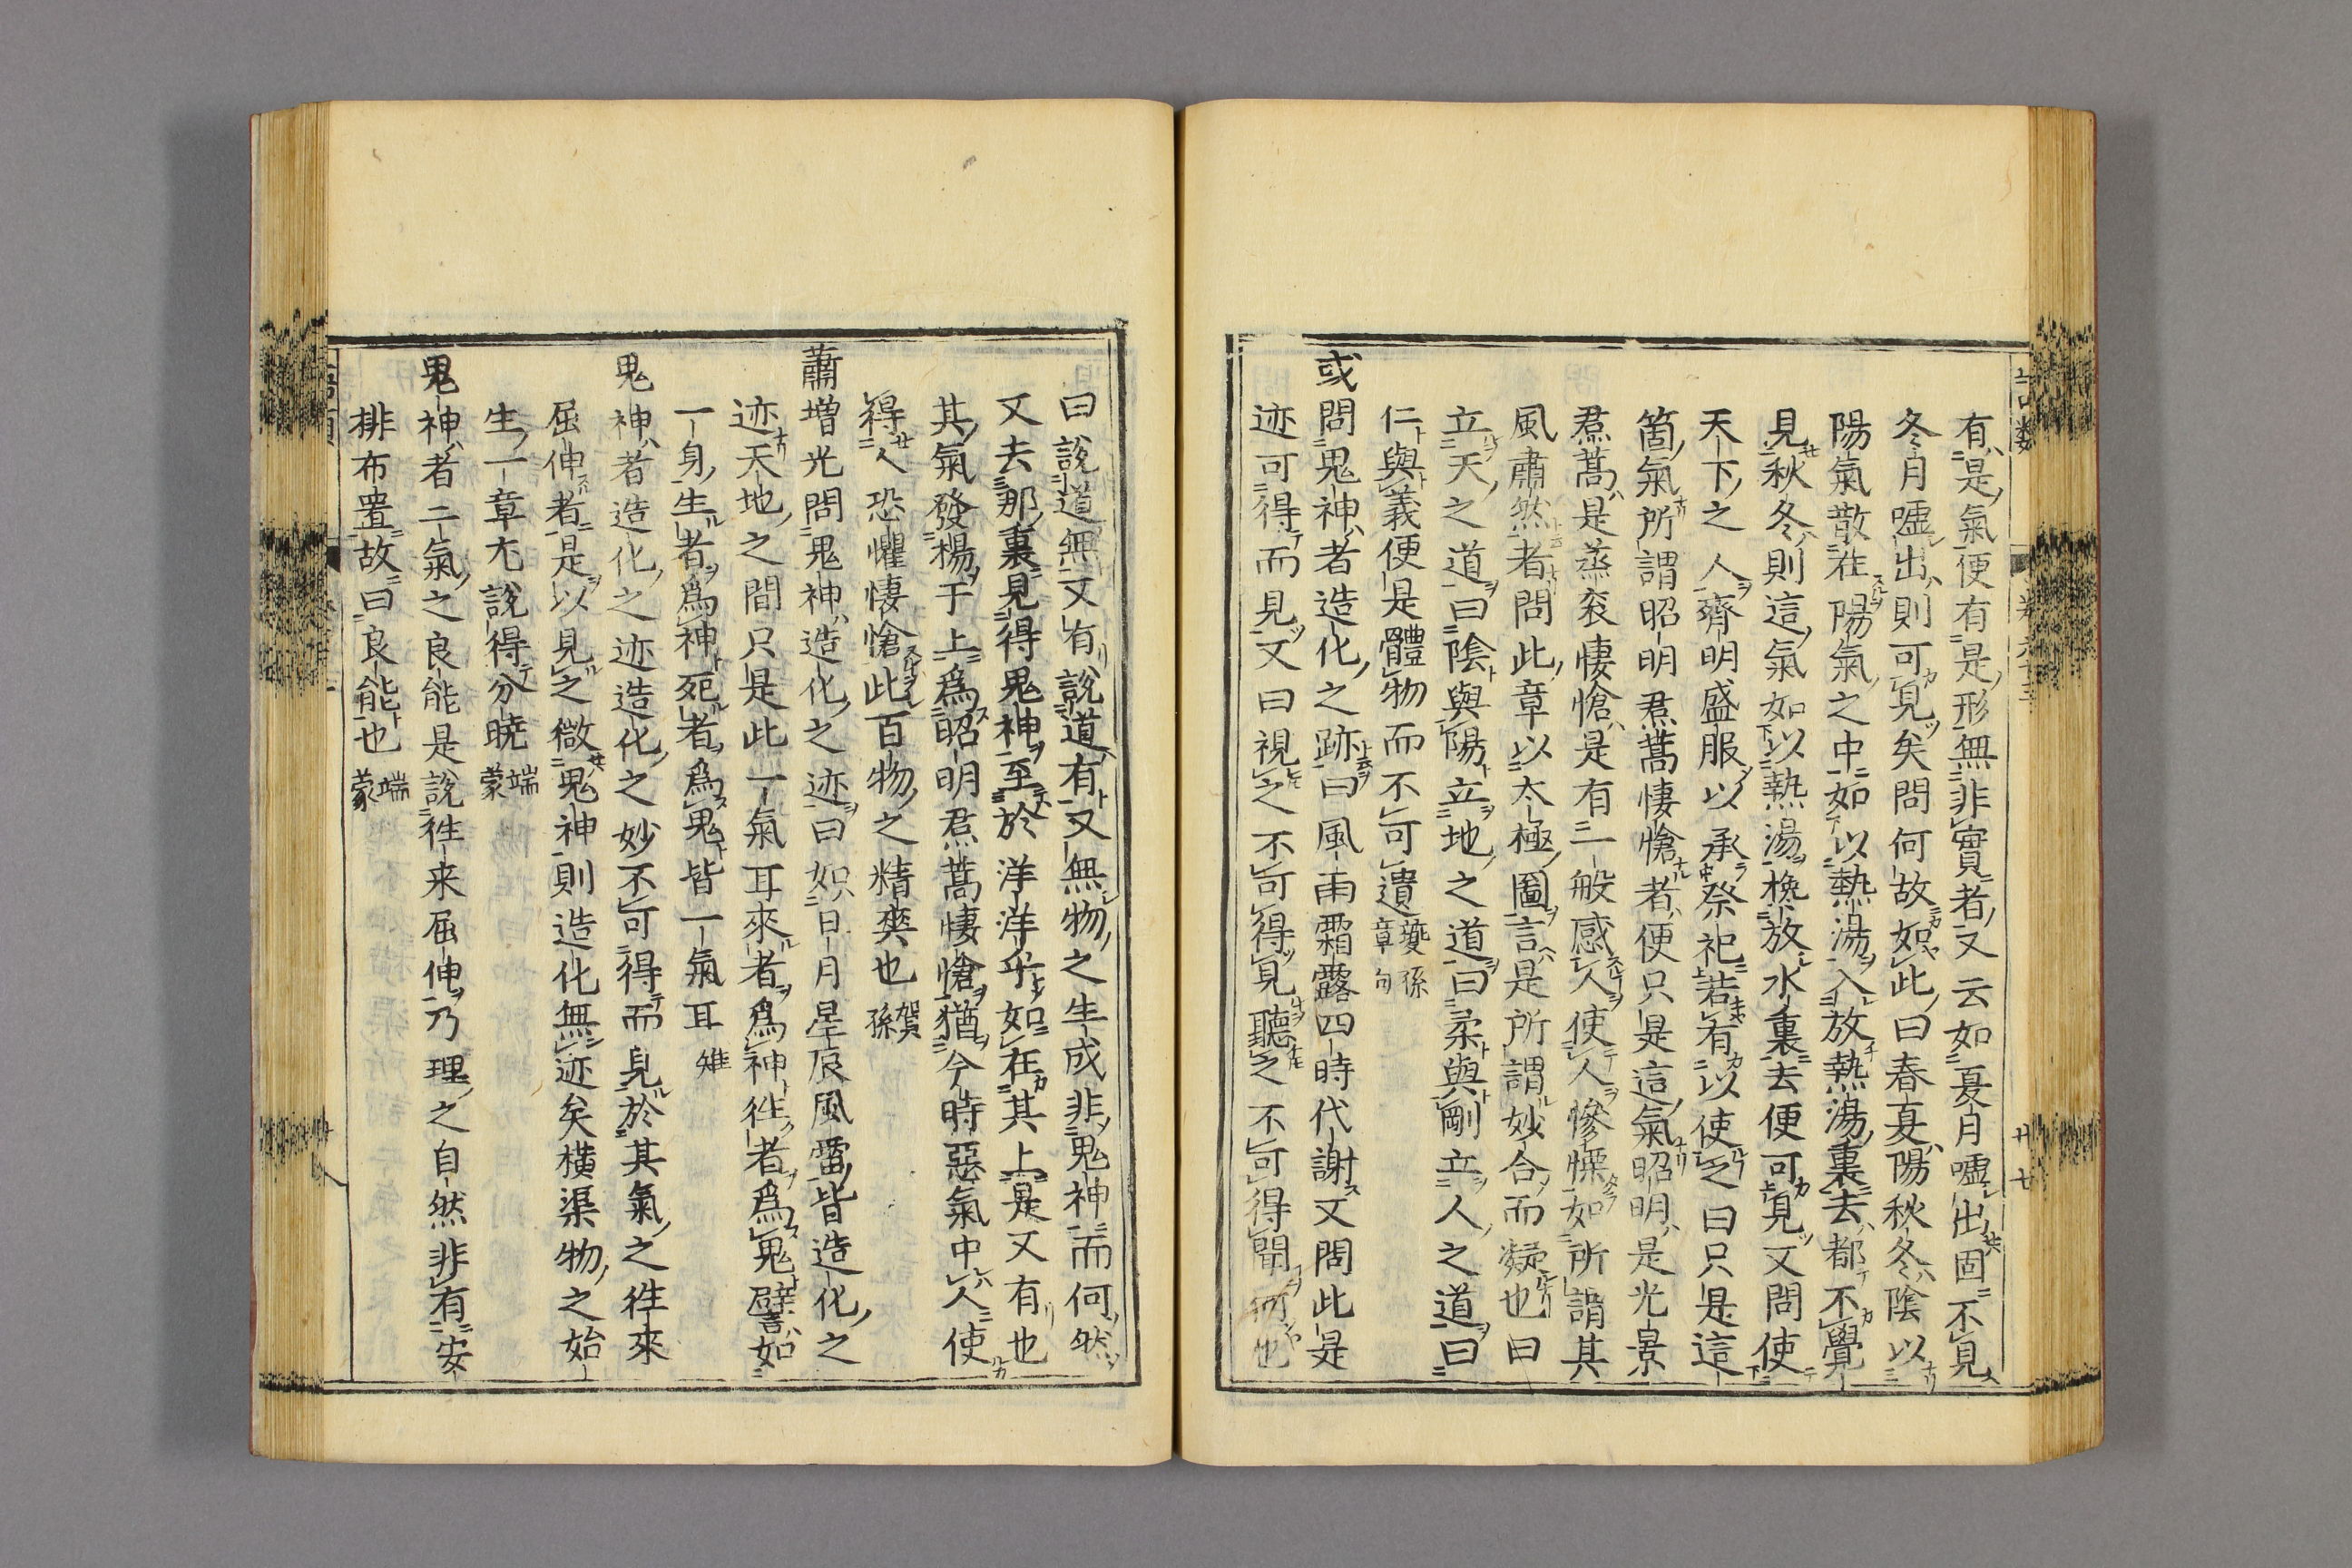 有是氣便有是形無非實者又云如夏月噓出固不見
冬月噓出則可見矣問何故如此曰春夏陽秋冬陰以
陽氣散在陽氣之中如以熱湯入放熱湯裏去都不覺
見秋冬則這氣如以熱湯攙放水裏去便可見又問使
天下之人齊明盛服以承祭祀若有以使之曰只是這
箇氣所謂昭明焄蒿悽愴者便只是這氣昭明是光景
焄蒿是蒸衮悽愴是有一般感人使人慘慄如所謂其
風肅然者問此章以太極圖言是所謂妙合而凝也曰
立天之道曰陰與陽立地之道曰柔與剛立人之道曰
仁與義便是體物而不可遺夔孫
章句
或問鬼神者造化之跡曰風雨霜露四時代謝又問此是
迹可得而見又曰視之不可得見聽之不可得聞何也
曰說道無又有說道有又無物之生成非鬼神而何然
又去那裏見得鬼神至於洋洋乎如在其上是又有也
其氣發楊于上爲昭明焄蒿悽愴猶今時惡氣中人使
得人恐懼悽愴此百物之精爽也賀
孫
蕭增光問鬼神造化之迹曰如日月星辰風雷皆造化之
迹天地之間只是此一氣耳來者爲神徃者爲鬼譬如
一身生者爲神死者爲鬼皆一氣耳雉
鬼神者造化之迹造化之妙不可得而見於其氣之徃來
屈伸者是以見之微鬼神則造化無迹矣橫渠物之始
生一章尢說得分曉端
蒙
鬼神者二氣之良能是說徃来屈伸乃理之自然非有安
排布置故曰良能也端
蒙